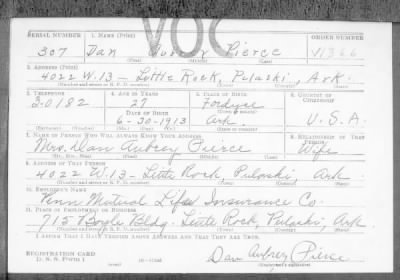 VOC
SERIAL NUMBER 1. NAME (Print) ORDER NUMBER
307 Dan Aubrey Pierce V1366
(First) (Middle) (Last)
2. ADDRESS (Print)
4022 W.13 - Little Rock, Pulaski, Ark.
(Number and street or R. F. D. number) (Town) (County) (State)
3. TELEPHONE 4. AGE IN YEARS 5. PLACE OF BIRTH 6. COUNTRY OF CITIZENSHIP
3-0182 27 Fordyce
DATE OF BIRTH
6-30-1913 Ark. U.S.A.
7. NAME OF PERSON WHO WILL ALWAYS KNOW YOUR ADDRESS 8. RELATIONSHIP OF THAT PERSON
Mrs. Dan Aubrey Pierce Wife
(Mr., Mrs., Miss) (First) (Middle) (Last)
9. ADDRESS OF THAT PERSON
4022 W.13 - Little Rock, Pulaski, Ark
(Number and street or R. F. D. number) (Town) (County) (State)
10. EMPLOYER'S NAME
Penn Mutual Life Insurance Co.
11. PLACE OF EMPLOYMENT OR BUSINESS
715 Boyle Bldg. Little Rock, Pulaski, Ark.
(Number and street or R. F. D. number) (Town) (County) (State)
I AFFIRM THAT I HAVE VERIFIED ABOVE ANSWERS AND THAT THEY ARE TRUE.
REGISTRATION CARD
D. S. S. FORM 1
Dan Aubrey Pierce